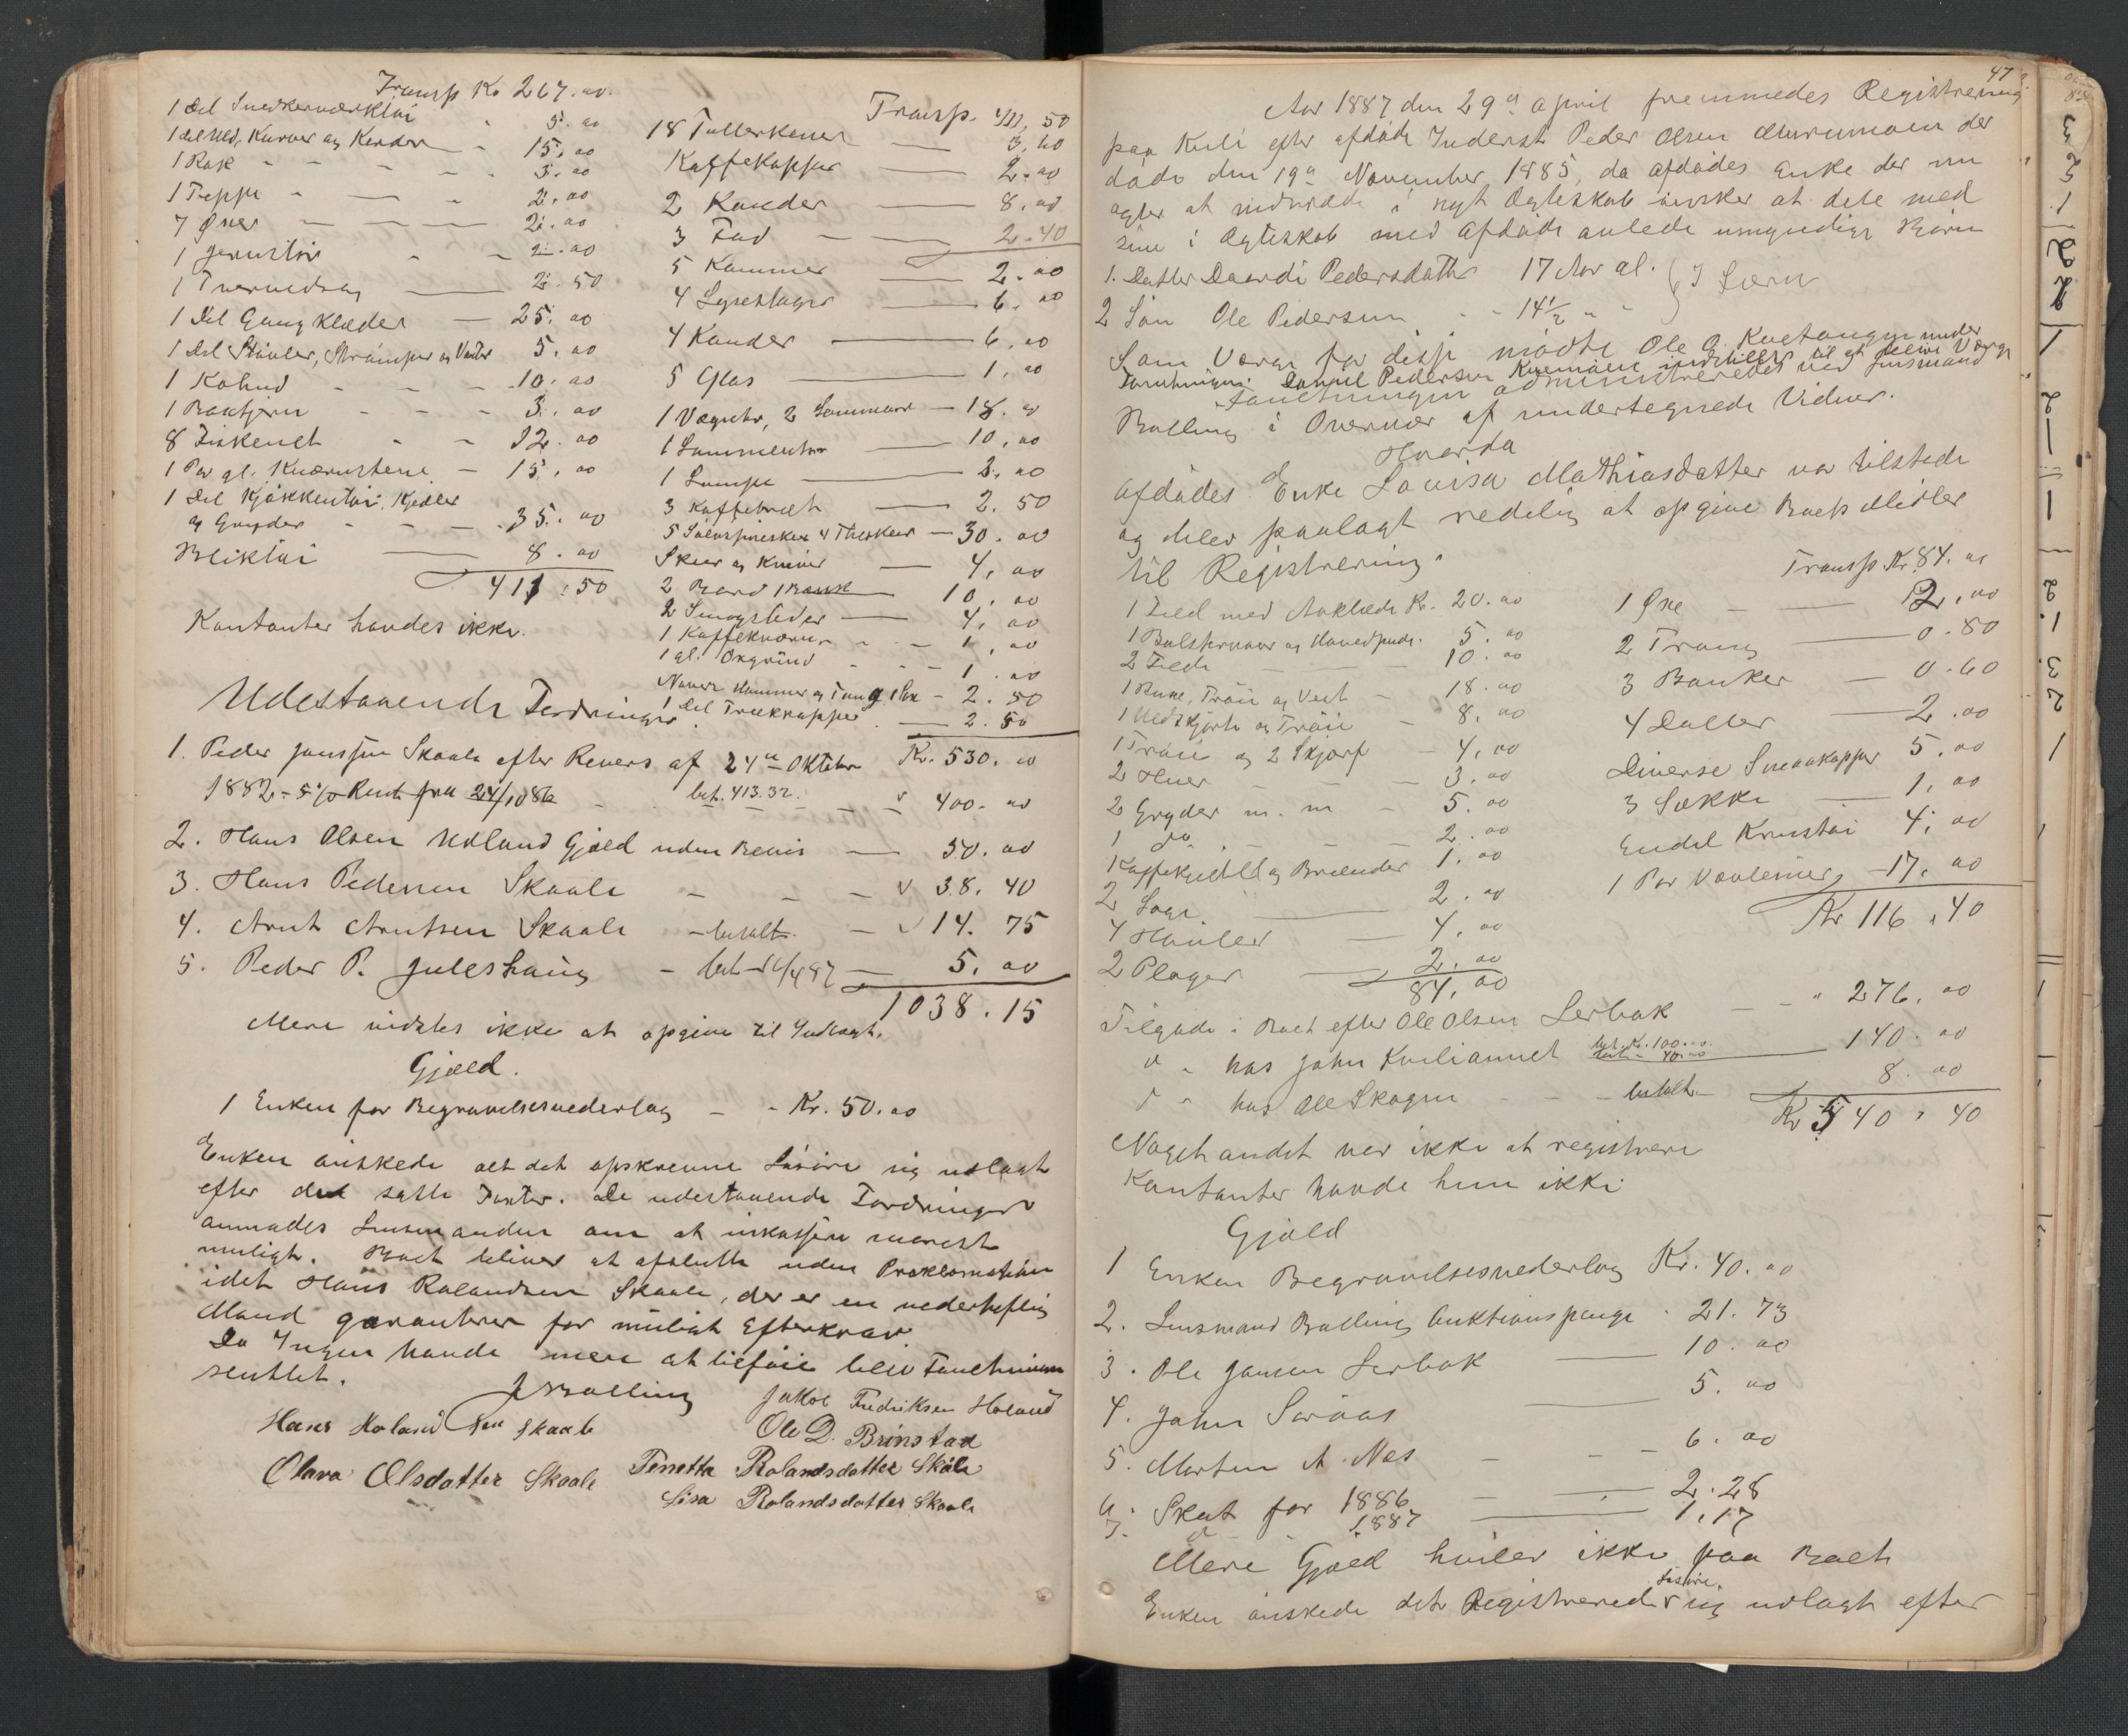 Transp Kr 267.00
1 Del Snedkerværktøi " 5.00
1 del Uld, Kurver og Karder " 15.00
1 Rok - - - 3.00
1 Teppe - - - 2.00
7 Øxer - - - 2.00
1 Jernstör - - 2.00
1 Tvervedsag — 2.50
1 Del Gangklæder — 25.00
1 Del Stövler, Strömper og Vanter 5.00
1 Kobud - - - 10.00
1 - - - 3.00
8 Fiskenet - - 12.00
1 Par gl. Kværnstene — 15.00
1 Del Kjökkentöi, Kjedler
og Gryder - - - 35.00
Bliktöi — 8.00
411.50
Kontanter havdes ikke.
Transp. 411,50
18 Tallerkener — 3,60
Kaffekopper — 2.00
2 Kander — 8.00
3 Fad — 2.40
5 Kammer — 2.00
4 Lysestager — 6.00
4 Kander — 6.00
5 Glas — 1.00
1 Væguhr, 2 — 18.00
1 Lommeuhr — 10.00
1 Lampe — 2.00
3 Kaffebræt — 2.50
5 Sölvspiseskeer 4 Theskeer — 30.00
Skeer og Knive — 4,00
2 Bord 1 Bænk 10.00
2 Smaysleder — 4,00
1 Kaffekværn - - 1,00
1 gl. - - 1.00
Naver Hammer og Tang 1 Sax - 2.50
1 Del Trækopper — 2.50
Kr. 530.00
Udestaaende Fordringer
1. Peder Jonssen Skaale efter Revers af 24de Oktober
1882 - 5% Rente fra 24/10 86 bet. 413.32. - - " 400.00
2. Hans Olsen Udland Gjæld uden Bevis — 50.00
3. Hans Pedersen Skaale - - - v 38.40
4. Arnt Arntsen Skaale - betalt - v 14.75
5. Peder P. Juleshaug - bet 4/87 — 5.00
1038.15
Mere vidstes ikke at opgive til Indtægt.
Gjæld.
1 Enken for Begravelsesvederlag - - Kr. 50.00
Enken önskede alt det opskrevne Lösöre sig udlagt
efter den satte Taxter. De udestaaende Fordringer
anmodes Lensmanden om at inkassere snarest
muligt. Boet bliver at afslutte uden Proklamation
idet Hans Rolandsen Skaale, der er en vederheftig
Mand garanterer for muligt Efterkrav
Da Ingen havde mere at tilföie blev Forretningen
sluttet.
J Balling Jakob Fredriksen Holand
Hans Roland Sen Skaale Ole D. Brinstad
Olava Olsdatter Skaale Pernetta Rolandsdatter Skåle
Lisa Rolandsdatter Skaale
47
Aar 1887 den 29de April fremmedes Registrering
paa Kuli efter afdöde Inderst Peder Olsen der
döde den 19de November 1885, da afdödes Enke der nu
agter at indtræde i nyt Ægteskab önsker at dele med
sine i Ægteskab med Afdöde avlede umyndige Börn
1. Datter Daardi Pedersdatter 17 Aar gl. } I Særn
2 Sön Ole Pedersen - - 14½ " "
Som Værge for disse mödte Ole A. under
Forretningen Daniel Pedersen indstilles til at blive Værge
Forretningen administreredes ved Lensmand
Balling i Overvær af undertegnede Vidner.
Hvorda
Afdödes Enke Lovisa Mathiasdatter var tilstede
og blev paalagt redelig at opgive Boets Midler
til Registrering.
1 Fæld med Aaklæde Kr. 20.00
1 Bolstervaar og Hovedpude. 5.00
2 Fælde — 10.00
1 Buxe, Tröie og Vest - 18.00
1 Uldskjorte og Tröie - 8.00
1 Tröie og 2 Skjorf - 4.00
2 Huer - - - 3.00
2 Gryder m. m - 5.00
1 do - - 2.00
Kaffekjedel og Brænder 1.00
2 Sage — 2.00
4 Hövler — 4.00
2 Plager — 2.00
84.00
Transp. Kr. 84.00
1 Øxe — 2.00
2 Traug — 0.80
3 Bunker — 0.60
4 Daller — 2.00
Diverse Smaakopper 5.00
3 Sække — 1.00
Endel Krustöi 4.00
1 Par Vævlener — 17.00
Kr 116,40
Tilgode i Boet efter Ole Olsen Lerbak - " 276.00
" " hos John bet. Kr. 100.00 bet. - 40.00 — 140.00
" " hos Ole Skogen - - - betalt — 8.00
Kr 540,40
Noget andet var ikke at registrere
Kontanter havde hun ikke
Gjæld
1 Enken Begravelsesvederlag Kr. 40.00
2. Lensmand Balling Auktionspenge " 21.73
3. Ole Jansen Lerbak — 10.00
4. John Svöaas — 5.00
5. Morten A. Næs - - 6.00
6. Skat for 1886 — 2.28
7. " - 1887 — 1,17
Mere Gjæld hviler ikke paa Boet
Enken önskede det Registrerede Lösöre sig udlagt efter